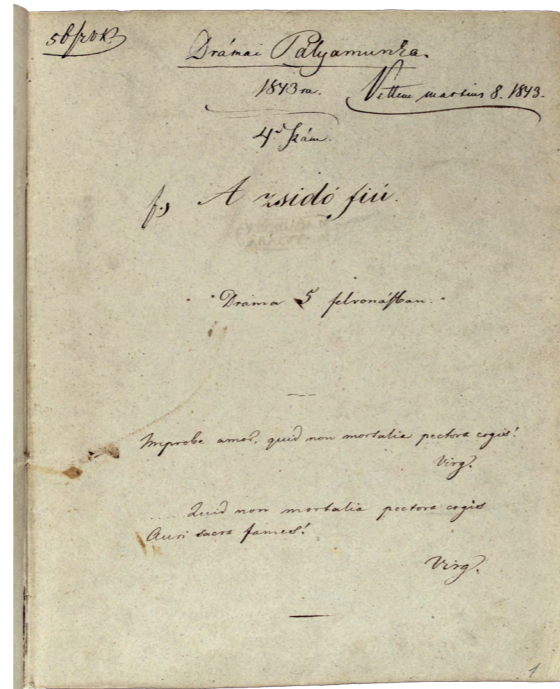 Drámai Pályamunka.
1843ra. Vettem martius 8. 1843.
4. szám.
A zsidó fiú.
Dráma 5 felvonásban.
Improbe amor, quid non mortalia pectora cogis!
Virg.
..... Quid non mortalia pectora cogis
Auri sacra fames!
Virg.
1